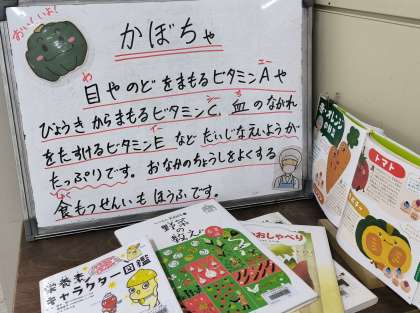 おいしいよ!
かぼちゃ
目やのどをまもるビタミンAや
びょうきからまもるビタミンC、血のながれ
をたすけるビタミンE など だいじなえいようが
たっぷりです。おなかのちょうしをよくする
食もつせんいもほうふです。
トマト
おしゃべり
野菜の教え
栄養素
キャラクター図鑑